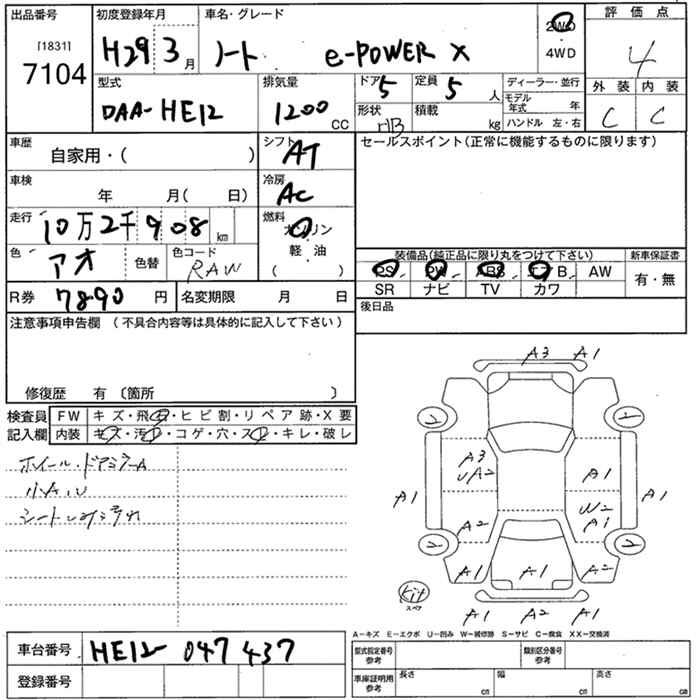 出品番号 初度登録年月 車名・グレード 評価点
[1831]
7104
H29 3月 ノート e-POWER X 2WD 4WD 4
型式 排気量 ドア 5 定員 5人 ディーラー・並行 外装 内装
DAA-HE12 1200 CC 形状 HB 積載 kg モデル年式 年 C C
ハンドル 左・右
車歴 シフト セールスポイント(正常に機能するものに限ります)
自家用・( ) AT
車検 冷房
年 月( 日) AC
走行 燃料
10万2千908 km ガソリン
軽・油
( )
色 アオ 色替 色コード RAW
装備品(純正品に限り丸をつけて下さい) 新車保証書
PS PW ABS エアB AW 有・無
SR ナビ TV カワ
R券 7890円 名変期限 月 日 後日品
注意事項申告欄 (不具合内容等は具体的に記入して下さい)
修復歴 有 〔箇所 〕
検査員 FW キズ・飛石・ヒビ割・リペア跡・X要
記入欄 内装 キズ・汚れ・コゲ・穴・スレ・キレ・破レ
ホイール・ドアミラーA
小A.U
A3 A1
A3
UA2 A1
A1 A1
W2
A2 A1
A1 A1 A2
Kit
スペア
A1 A2 A1
A-キズ E-エクボ U-凹み W-補修跡 S-サビ C-腐食 XX-交換済
車台番号 HE12-047437
登録番号
型式指定番号 参考 類別区分番号 参考
車庫証明用 参考 長さ cm 幅 cm 高さ cm